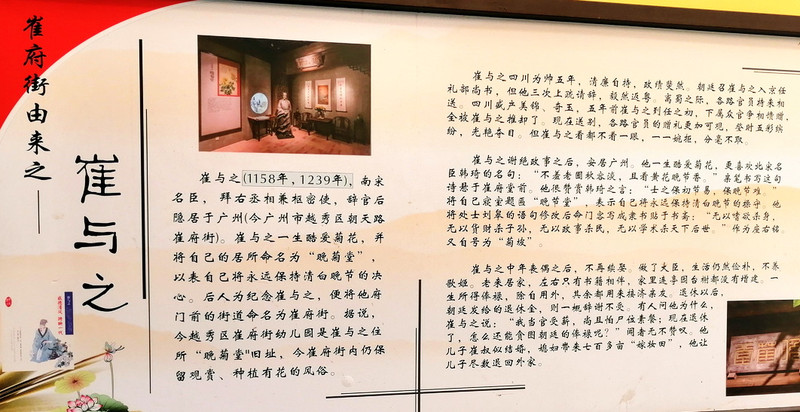 崔府街由来之——
崔与之
崔与之(1158年,1239年),南宋
名臣,拜右丞相兼枢密使,辞官后
隐居于广州(今广州市越秀区朝天路
崔府街)。崔与之一生酷爱菊花,并
将自己的居所命名为“晚菊堂”,
以表自己将永远保持清白晚节的决
心。后人为纪念崔与之,便将他府
门前的街道命名为崔府街。据说,
今越秀区崔府街幼儿园是崔与之住
所“晚菊堂”旧址,今崔府街内仍保
留观赏、种植有花的风俗。
崔与之四川为帅五年,清廉自持,政绩斐然。朝廷召崔与之入京任
礼部尚书,但他三次上疏请辞,毅然返粤。离蜀之际,各路官员持来相
送。四川盛产美锦、奇玉,五年前崔与之到任之初,下属众官争相馈赠,
全被崔与之推却了。现在送别,各路官员的赠礼更加可观,登时五彩缤
纷,光艳夺目。但崔与之看都不看一眼,一一婉拒,分毫不取。
崔与之谢绝政事之后,安居广州。他一生酷爱菊花,更喜欢北宋名
臣韩琦的名句:“不羞老圃秋容淡,且看黄花晚节香。”亲笔书写这句
诗悬于崔府堂前。他很赞赏韩琦之言:“士之保初节易,保晚节难。”
将自己寝室题匾“晚节堂”,表示自己将永远保持清白晚节的操守。他
将处士刘皋的语句修改后命门客写成隶书贴于书斋:“无以嗜欲杀身,
无以货财杀子孙,无以政事杀民,无以学术杀天下后世。”作为座右铭。
又自号为“菊坡”。
崔与之中年丧偶之后,不再续娶。做了大臣,生活仍然俭朴,不养
歌姬。老来居家,左右只有书籍相伴,家里连亭园台榭都没有增建。一
生所得俸禄,除自用外,其余都用来接济亲友。退休以后,
朝廷发给的退休金,则一概辞谢不受。有人问他为什么,
崔与之说:“我当官受薪,尚且怕尸位素餐;现在退休
了,怎么还能贪图朝廷的俸禄呢?”闻者无不赞叹。他
儿子崔叔似结婚,媳妇带来七百多亩“嫁妆田”,他让
儿子尽数退回外家。